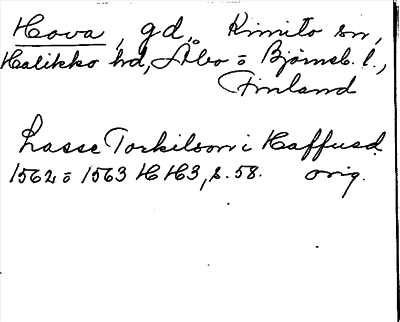 Hova, gd, Kimito sn,
Halikko hd, Åbo o Björneb. l.,
Finland
Lasse Torkilson i Haffusd
1562 o 1563 HH3, s. 58. orig.